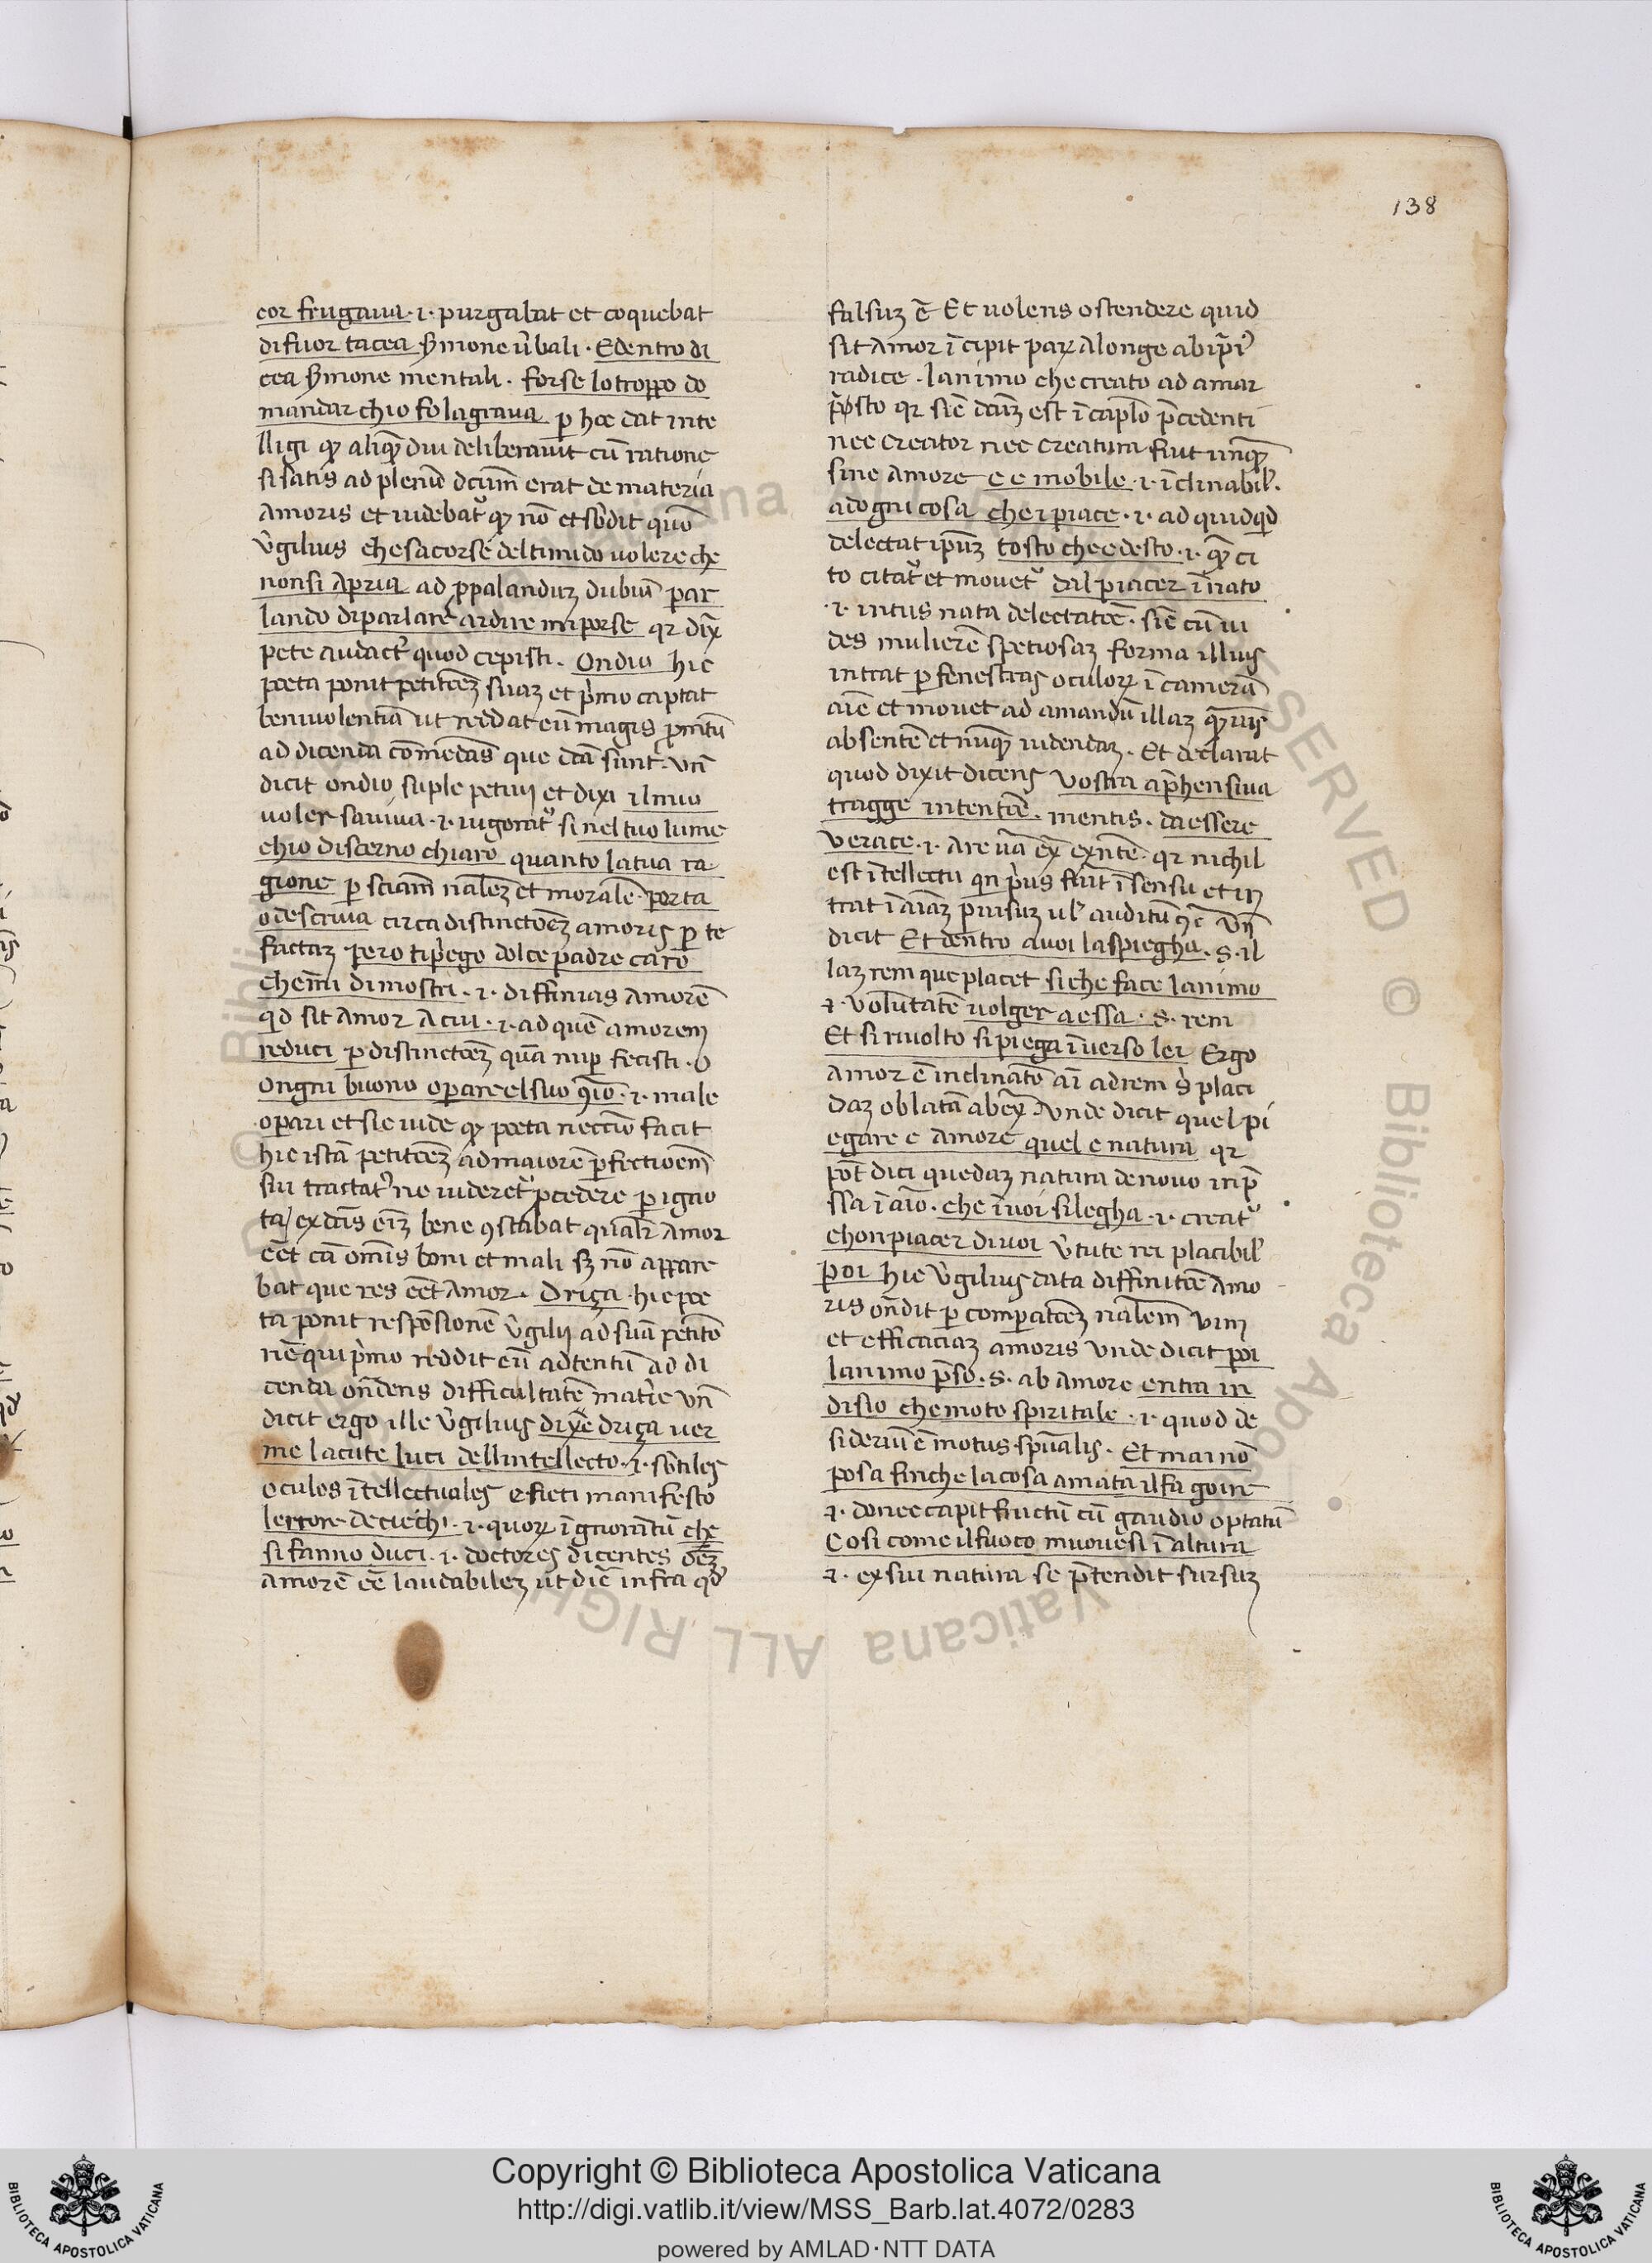 138
cor frugaua .i. purgabat et coquebat
difuor tacea s̄mone ūbali . Edentro di
cea s̄mone mentali . forse lo troppo do
mandar chio fo lagraua p̱ hoc dat inte
lligi qꝫ aliqͣ diu deliberauit cū ratione
si satis ad plenū dc̄um erat de materia
amoris et uidebat᷒ qꝫ nō et sb̄dit quō
v̄gilius che sacorse del timido uolere che
non si apria ad ꝓpalanduꝫ dubiū par
lando diparlare ardire mi porse qr dix̄
pete audact᷒ quod cepisti . Ondio hic
poeta ponit petitōeꝫ suaꝫ et p̄mo captat
beniuolentiā ut reddat eū magis ꝓmtū
ad dicenda cōmēdās que dc̄a sunt . Vn̄
dicit ondio suple petiui et dixi il mio
uoler sauiua .i. uigorat᷒ si nel tuo lume
chio discerno chiaro quanto latua ra
gione p̱ sciam̄ nal̄eꝫ et moralē . porta
o descriua circa distinctōeꝫ amoris p̱ te
factaꝫ pero ti p̄ego dolce padre caro
che m̄ dimostri . i. diffinias amorē
qd sit amor A cui .i. ad quē amorem
reduci p̱ distinctōeꝫ quā nup̱ fecisti . O
ongni buono operare el suo ꝯt̄io .i. male
operari et sic uide qꝫ poeta neccīo facit
hic istā petitōeꝫ ad maiorē p̱fectioem̄
sui tractat᷒ ne uideret᷒ ꝓcedere p̱ igno
ta ex dc̄is eīꝫ bene ꝯstabat qual̄r amor
eēt cā om̄is boni et mali sꝫ nō appare
bat que res eēt amor . Driça . hic poe
ta ponit respōsionē v̄gilij ad suā petitō
nē qui p̄mo reddit eū adtentū ad di
cenda on̄dens difficultatē mat̄ie vn̄
dicit ergo ille v̄gilius dixē driça uer
me lacute luci dellintellecto .i. sb̄tiles
oculos ītellectuales e fieti manifesto
lerrore de ciechi .i. quoꝝ ignorātū che
si fanno duci .i. doctores dicentes oēꝫ
amorē eē laudabileꝫ ut dic̄ infra qd᷒
falsuꝫ ē Et uolens ostendere quid
sit amor īcipit paꝝ alonge ab ip̄i᷒
radice . lanimo che creato ad amar
p̄sto qr sic̄ dc̄uꝫ est ī capl̄o p̄cedenti
nec creator nec creatura fuit unqͣ
sine amore e e mobile .i. īclinabil᷒ .
ad ogni cosa che i piace .i. ad quidqd
delectat ip̄uꝫ tosto che e desto .i. qͣ ci
to citat᷒ et mouet᷒ dal piacer īnato
.i. intus nata delectatōe . sic̄ cū ui
des mulierē spetiosaꝫ forma illius
intrat p̱ fenestras oculoꝝ ī camerā
aīe et mouet ad amandū illaꝫ qͣuis
absentē et nūqͣ uidendaꝫ . Et declarat
quod dixit dicens vostra ap̄hensiua
tragge intentiōe . mentis . da essere
verace .i. a re uā ex̄ ex̄ntē . qr nichil
est ītellectu qn p̄us fuit ī sensu et in
trat ī aīaꝫ p̱ uisuꝫ ul᷒ auditū vn̄
dicit Et dentro auoi laspiegha . s. il
laꝫ rem que placet si che face lanimo
.i. volūtatē uolger aessa . s. rem
Et si riuolto si piega īuerso lei Ergo
amor ē inclinatō aī ad rem s᷒ placi
daꝫ oblatā ab ex᷒ā Vnde dicit quel pi
egare e amore quel e natura qr
pōt dici quedaꝫ natura denouo inp̄
ssa ī aīo . che īuoi si legha .i. creat᷒
chon piacer diuoi v̄tute rei placibil᷒
poi hic v̄gilius data diffinitōe amo
ris on̄dit p̱ comparatōeꝫ nal̄em vim
et efficaciaꝫ amoris vnde dicit poi
lanimo p̄so . s. ab amore entra in
disio che moto spiritale .i. quod de
sideriū ē motus sp̄ualis . Et mai nō
posa finche la cosa amata il fa goire
.i. donec capit fructū cū gaudio optatū
Cosi come il fuoco muouesi ī altura
.i. ex sui natura se p̄tendit sursuꝫ
Copyright © Biblioteca Apostolica Vaticana
http://digi.vatlib.it/view/MSS_Barb.lat.4072/0283
powered by AMLAD·NTT DATA
BIBLIOTECA APOSTOLICA VATICANA
BIBLIOTECA APOSTOLICA VATICANA